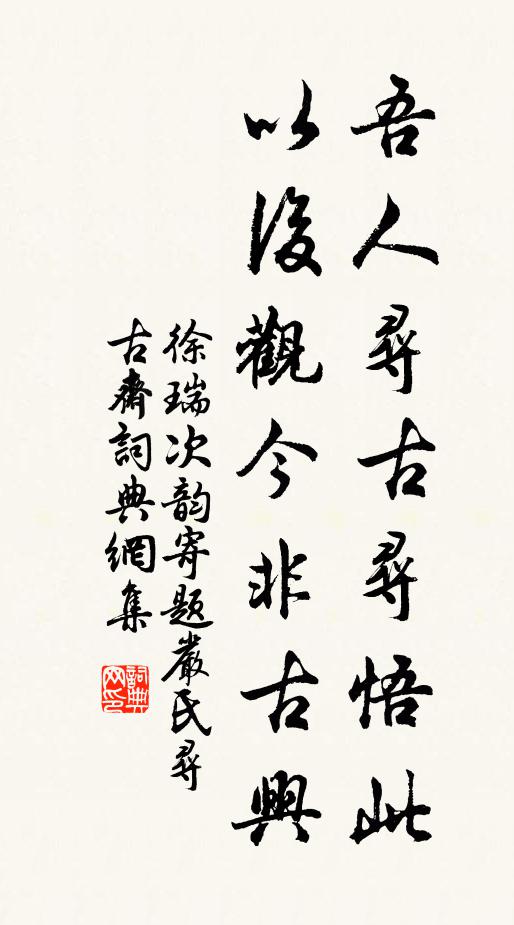 吾人尋古尋悟此
以後觀今非古興
徐瑞次韵寄題嚴民尋
古齋詞典網集
詞典
网印